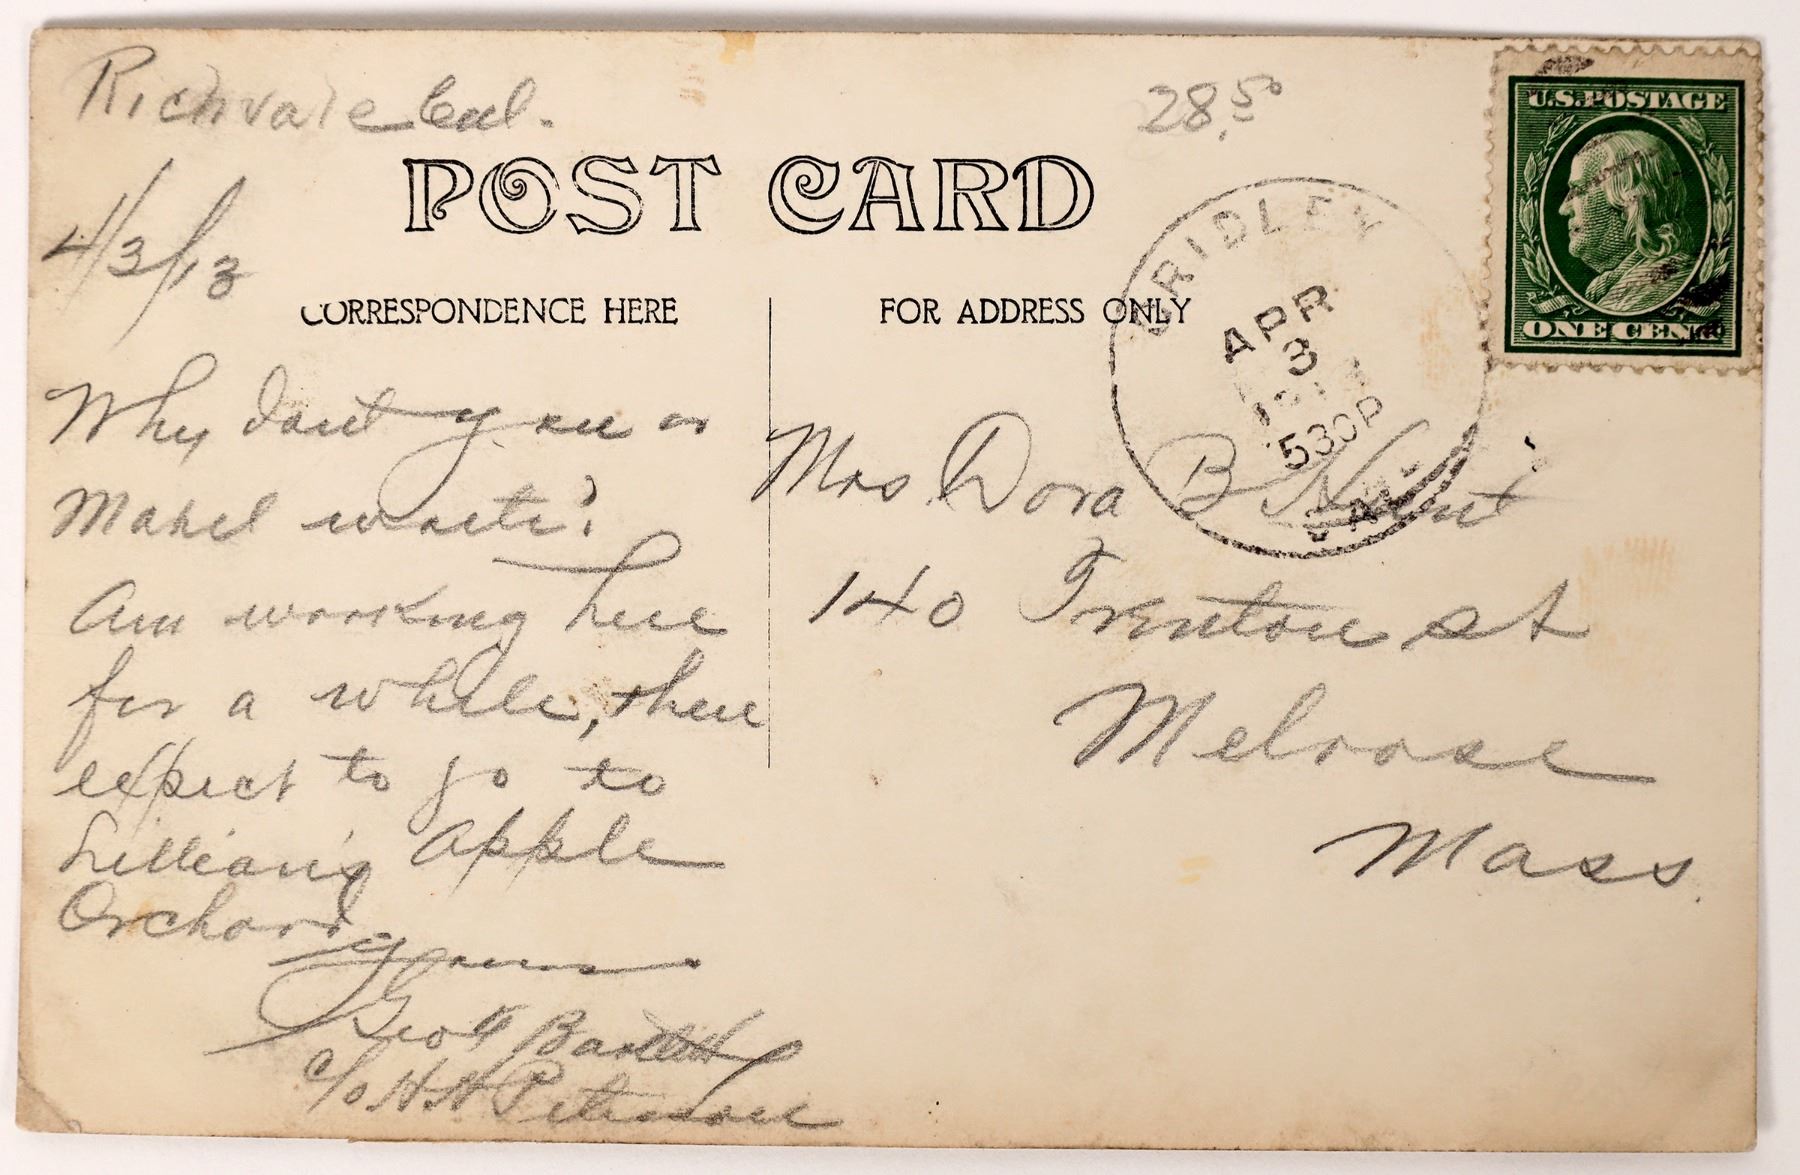 Richvale Cal.
28.50
U.S. POSTAGE
ONE CENT
4/3/13
POST CARD
GRIDLEY
APR
3
530P
CAL.
CORRESPONDENCE HERE
FOR ADDRESS ONLY
Why dont you or
Mabel write?
Am working here
for a while, then
expect to go to
Lillian's Apple
Orchard
Yours
Geo Bartlett
c/o H. N Peterson
Mrs Dora B Hunt
140 Trenton st
Melrose
Mass.